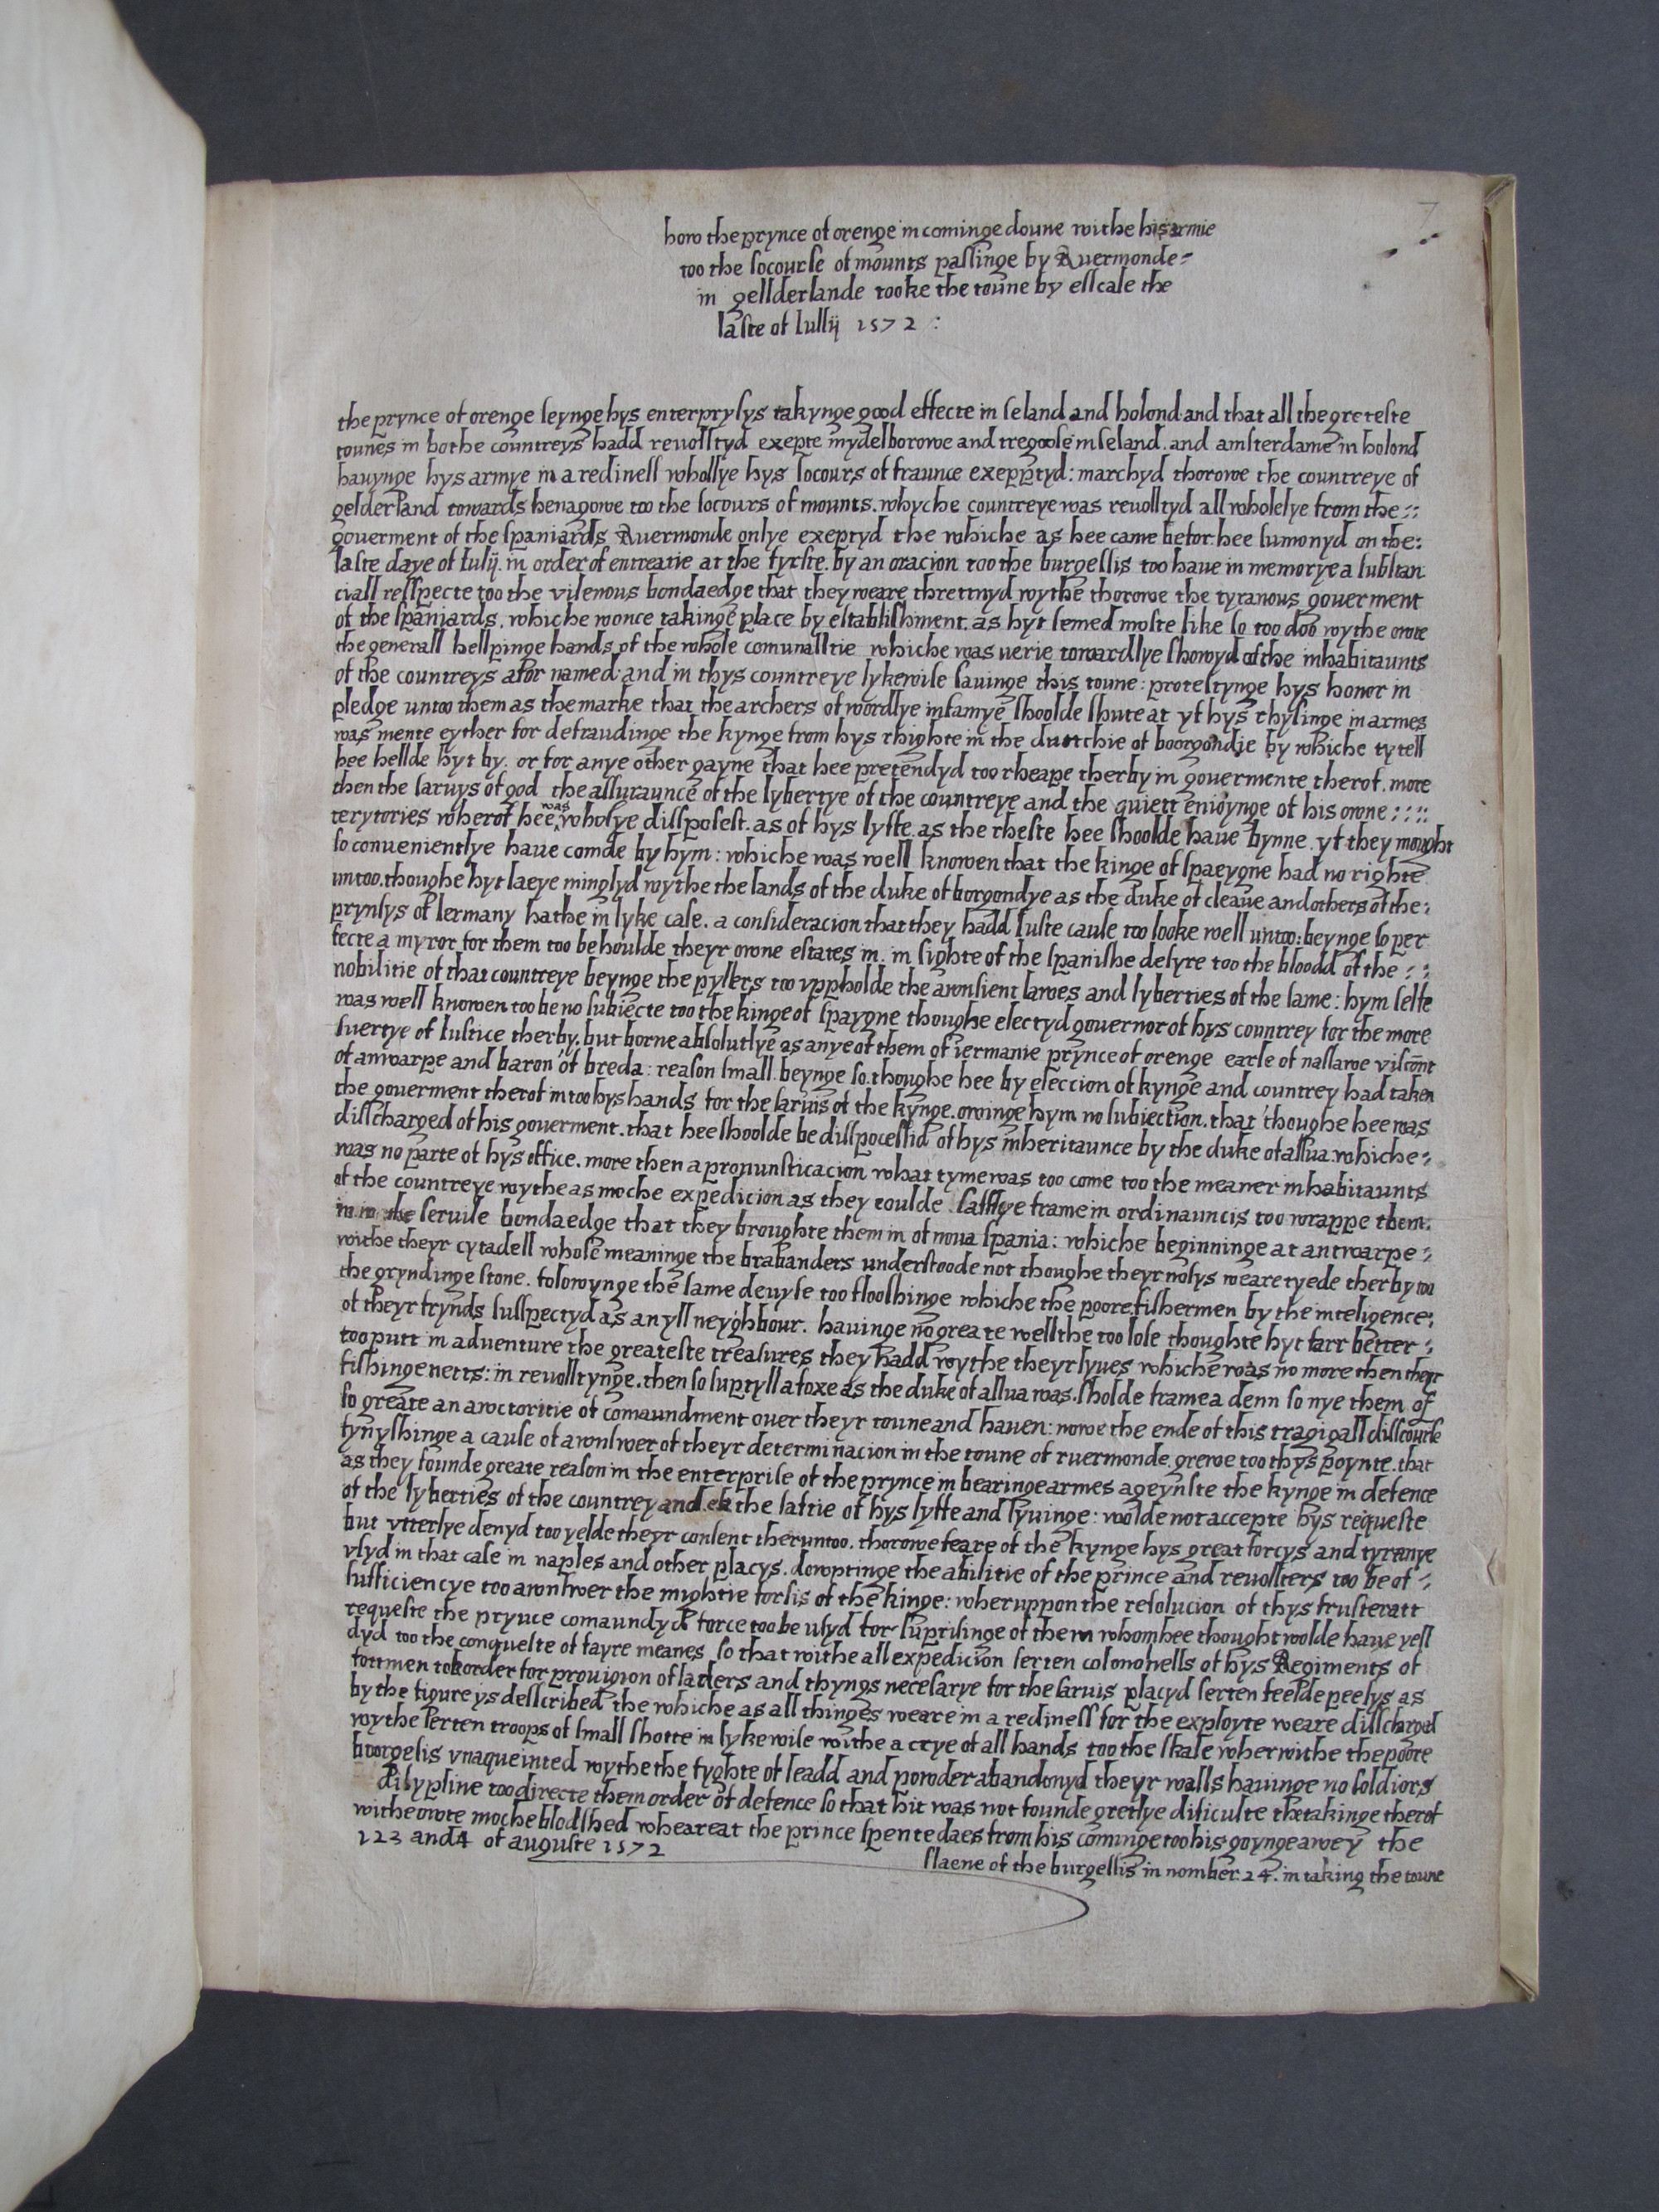 7
how the prynce of orenge in cominge doune withe his armie
too the socourse of mounts passinge by Ruermonde=
in gellderlande tooke the toune by esscale the
laste of Iullij 1572 :
the prynce of orenge seynge hys enterprysys takynge good effecte in seland and holond and that all the greteste
tounes in bothe countreys hadd reuolltyd exepte mydelborowe and tregoose in seland . and amsterdame in holond
hauynge hys armye in a redinell whollye hys socours of fraunce exepptyd : marchyd thorowe the countreye of
gelderland towards henagowe too the socours of mounts . whyche countreye was reuolltyd all wholelye from the ::
gouerment of the spaniards Ruermonde onlye exeptyd the whiche as hee came befor hee sumonyd on the:
laste daye of Iulij . in order of entreatie at the fyrste . by an oracion too the burgessis too haue in memorye a substan
ciall resspecte too the vilenous bondaedge that they weare threttnyd wythe thorowe the tyranous gouerment
of the spaniards . whiche wonce takinge place by establishment . as hyt semed moste like so too doo wythe owte
the generall hellpinge hands of the whole comunalltie whiche was uerie towardlye showyd of the inhabitaunts
of the countreys afor named and in thys countreye lykewise sauinge this toune : protestynge hys honor in
pledge untoo them as the marke that the archers of wordlye infamye shoolde shute at yf hys rhysinge in armes
was mente eyther for defraudinge the kynge from hys rhighte in the dutchie of boorgondie by whiche tytell
hee hellde hyt by . or for anye other gayne that hee pretendyd too rheape therby in gouermente therof . more
then the saruys of god the assuraunce of the lybertye of the countreye and the quiett enioynge of his owne ::::
terytories wherof hee was wholye dissposest . as of hys lyffe . as the rheste hee shoolde haue bynne . yf they mought
so convenientlye haue comde by hym : whiche was well knowen that the kinge of spaeygne had no righte
untoo . thoughe hyt laeye minglyd wythe the lands of the duke of borgondye as the duke of cleaue and others of the :
prynsys of Iermany hathe in lyke case . a consideracion that they hadd Iuste cause too looke well untoo : beynge so per
fecte a myror for them too behoulde theyr owne estates in . in sighte of the spanishe desyre too the bloodd of the : :
nobilitie of that countreye beynge the pyllers too vppholde the awnsient lawes and lyberties of the same : hym selfe
was well knowen too be no subiecte too the kinge of spaygne thoughe electyd gouernor of hys countrey for the more
suertye of Iustice therby . but borne absolutlye as anye of them of iermanie prynce of orenge earle of nassawe viscont
of anwarpe and baron of breda : reason small . beynge so . thoughe hee by eleccion of kynge and countrey had taken
the gouerment therof in too hys hands for the saruis of the kynge . owinge hym no subiection . that thoughe hee was
disscharged of his gouerment . that hee shoolde be disspocessid of hys inheritaunce by the duke of allua . whiche :
was no parte of hys office . more then a pronunsticacion what tyme was too come too the meaner inhabitaunts
of the countreye wythe as moche expedicion as they coulde saftlye frame in ordinauncis too wrappe them .
in to the seruile bondaedge that they broughte them in of noua spania : whiche beginninge at antwarpe :
withe theyr cytadell whose meaninge the brabanders understoode not thoughe theyr nosys weare tyede therby too
the gryndinge stone . folowynge the same deuyse too floshinge whiche the poore fishermen by the inteligence :
of theyr frynds susspectyd as an yll neyghbour . hauinge no greate wellthe too lose thoughte hyt farr better :
too putt in adventure the greateste treasures they hadd wythe theyr lyues whiche was no more then theyr
fishinge netts : in reuolltynge . then so suptyll a foxe as the duke of allua was . sholde frame a denn so nye them of
so greate an awctoritie of comaundment ouer theyr toune and hauen : nowe the ende of this tragigall disscourse
fynyshinge a cause of awnswer of theyr determinacion in the toune of ruermonde . grewe too thys poynte . that
as they founde greate reason in the enterprise of the prynce in bearinge armes ageynste the kynge in defence
of the lyberties of the countrey and ek the saftie of hys lyffe and lyuinge : wolde not accepte hys requeste
but vtterlye denyd too yelde theyr consent theruntoo . thorowe feare of the kynge hys great forcys and tyranye
vsyd in that case in naples and other placys . dowptinge the abilitie of the prince and reuollters too be of :
sufficiencye too awnswer the mightie forsis of the kinge : wheruppon the resolucion of thys frusteratt
requeste the prynce comaundyd force too be usyd for suprisinge of them whom hee thought woolde haue yell
dyd too the conqueste of fayre meanes so that withe all expedicion serten colonohells of hys Regiments of
fottmen tok order for prouigion of ladders and thyngs necesarye for the saruis placyd serten feelde peesys as
by the figure ys desscribed the whiche as all thinges weare in a rediness for the exployte weare disscharged
wythe serten troops of small shotte in lykewise withe a crye of all hands too the skale wherwithe the poore
boorgesis vnaqueinted wythe the fyghte of leadd and powder abandonyd theyr walls hauinge no soldiors
disypline too directe them order of defence so that hit was not founde gretlye dificulte the takinge therof
witheowte moche blodshed wheareat the prince spente daes from his cominge too his goynge awey the
1 2 3 and 4 of auguste 1572
slaene of the burgessis in nomber . 24 . in taking the toune